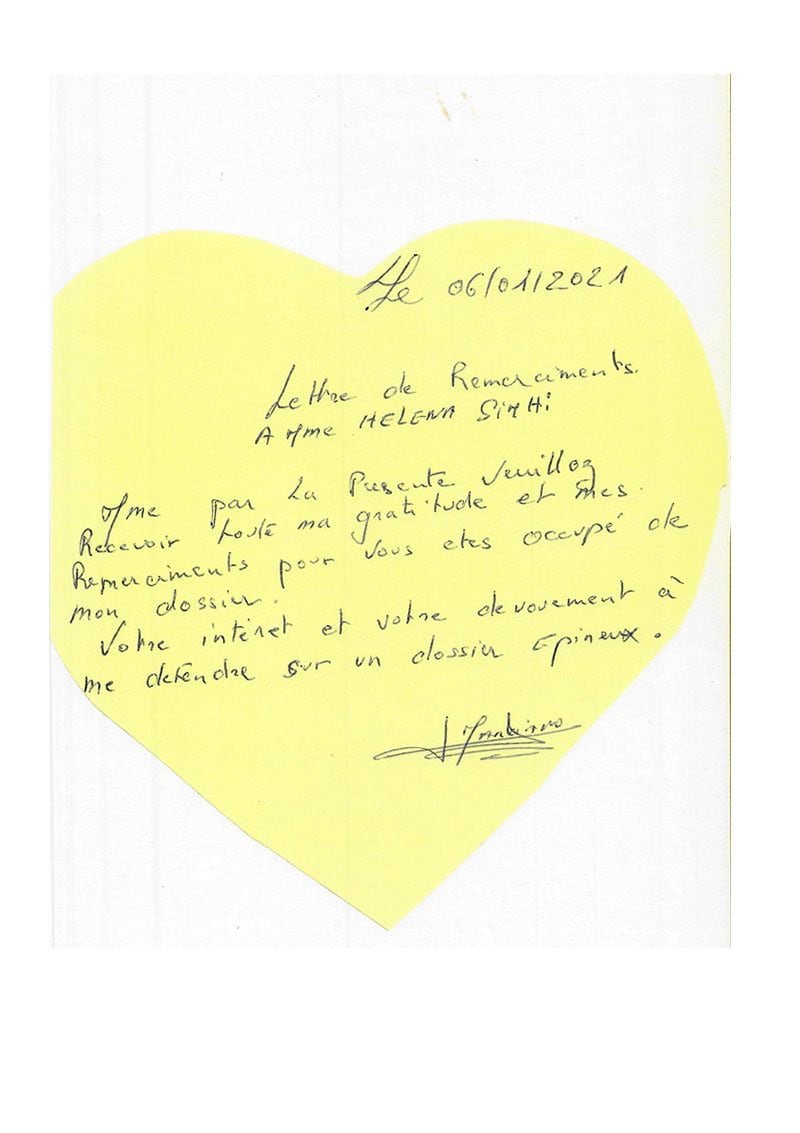 Le 06/01/2021
Lettre de Remerciments.
A Mme HELENA SIMHi
Mme par La Presente Veuillez
Recevoir toute ma gratitude et mes
Remerciments pour vous etes occupé de
mon dossier.
Votre intéret et votre devouement à
me defendre sur un dossier Epineux.